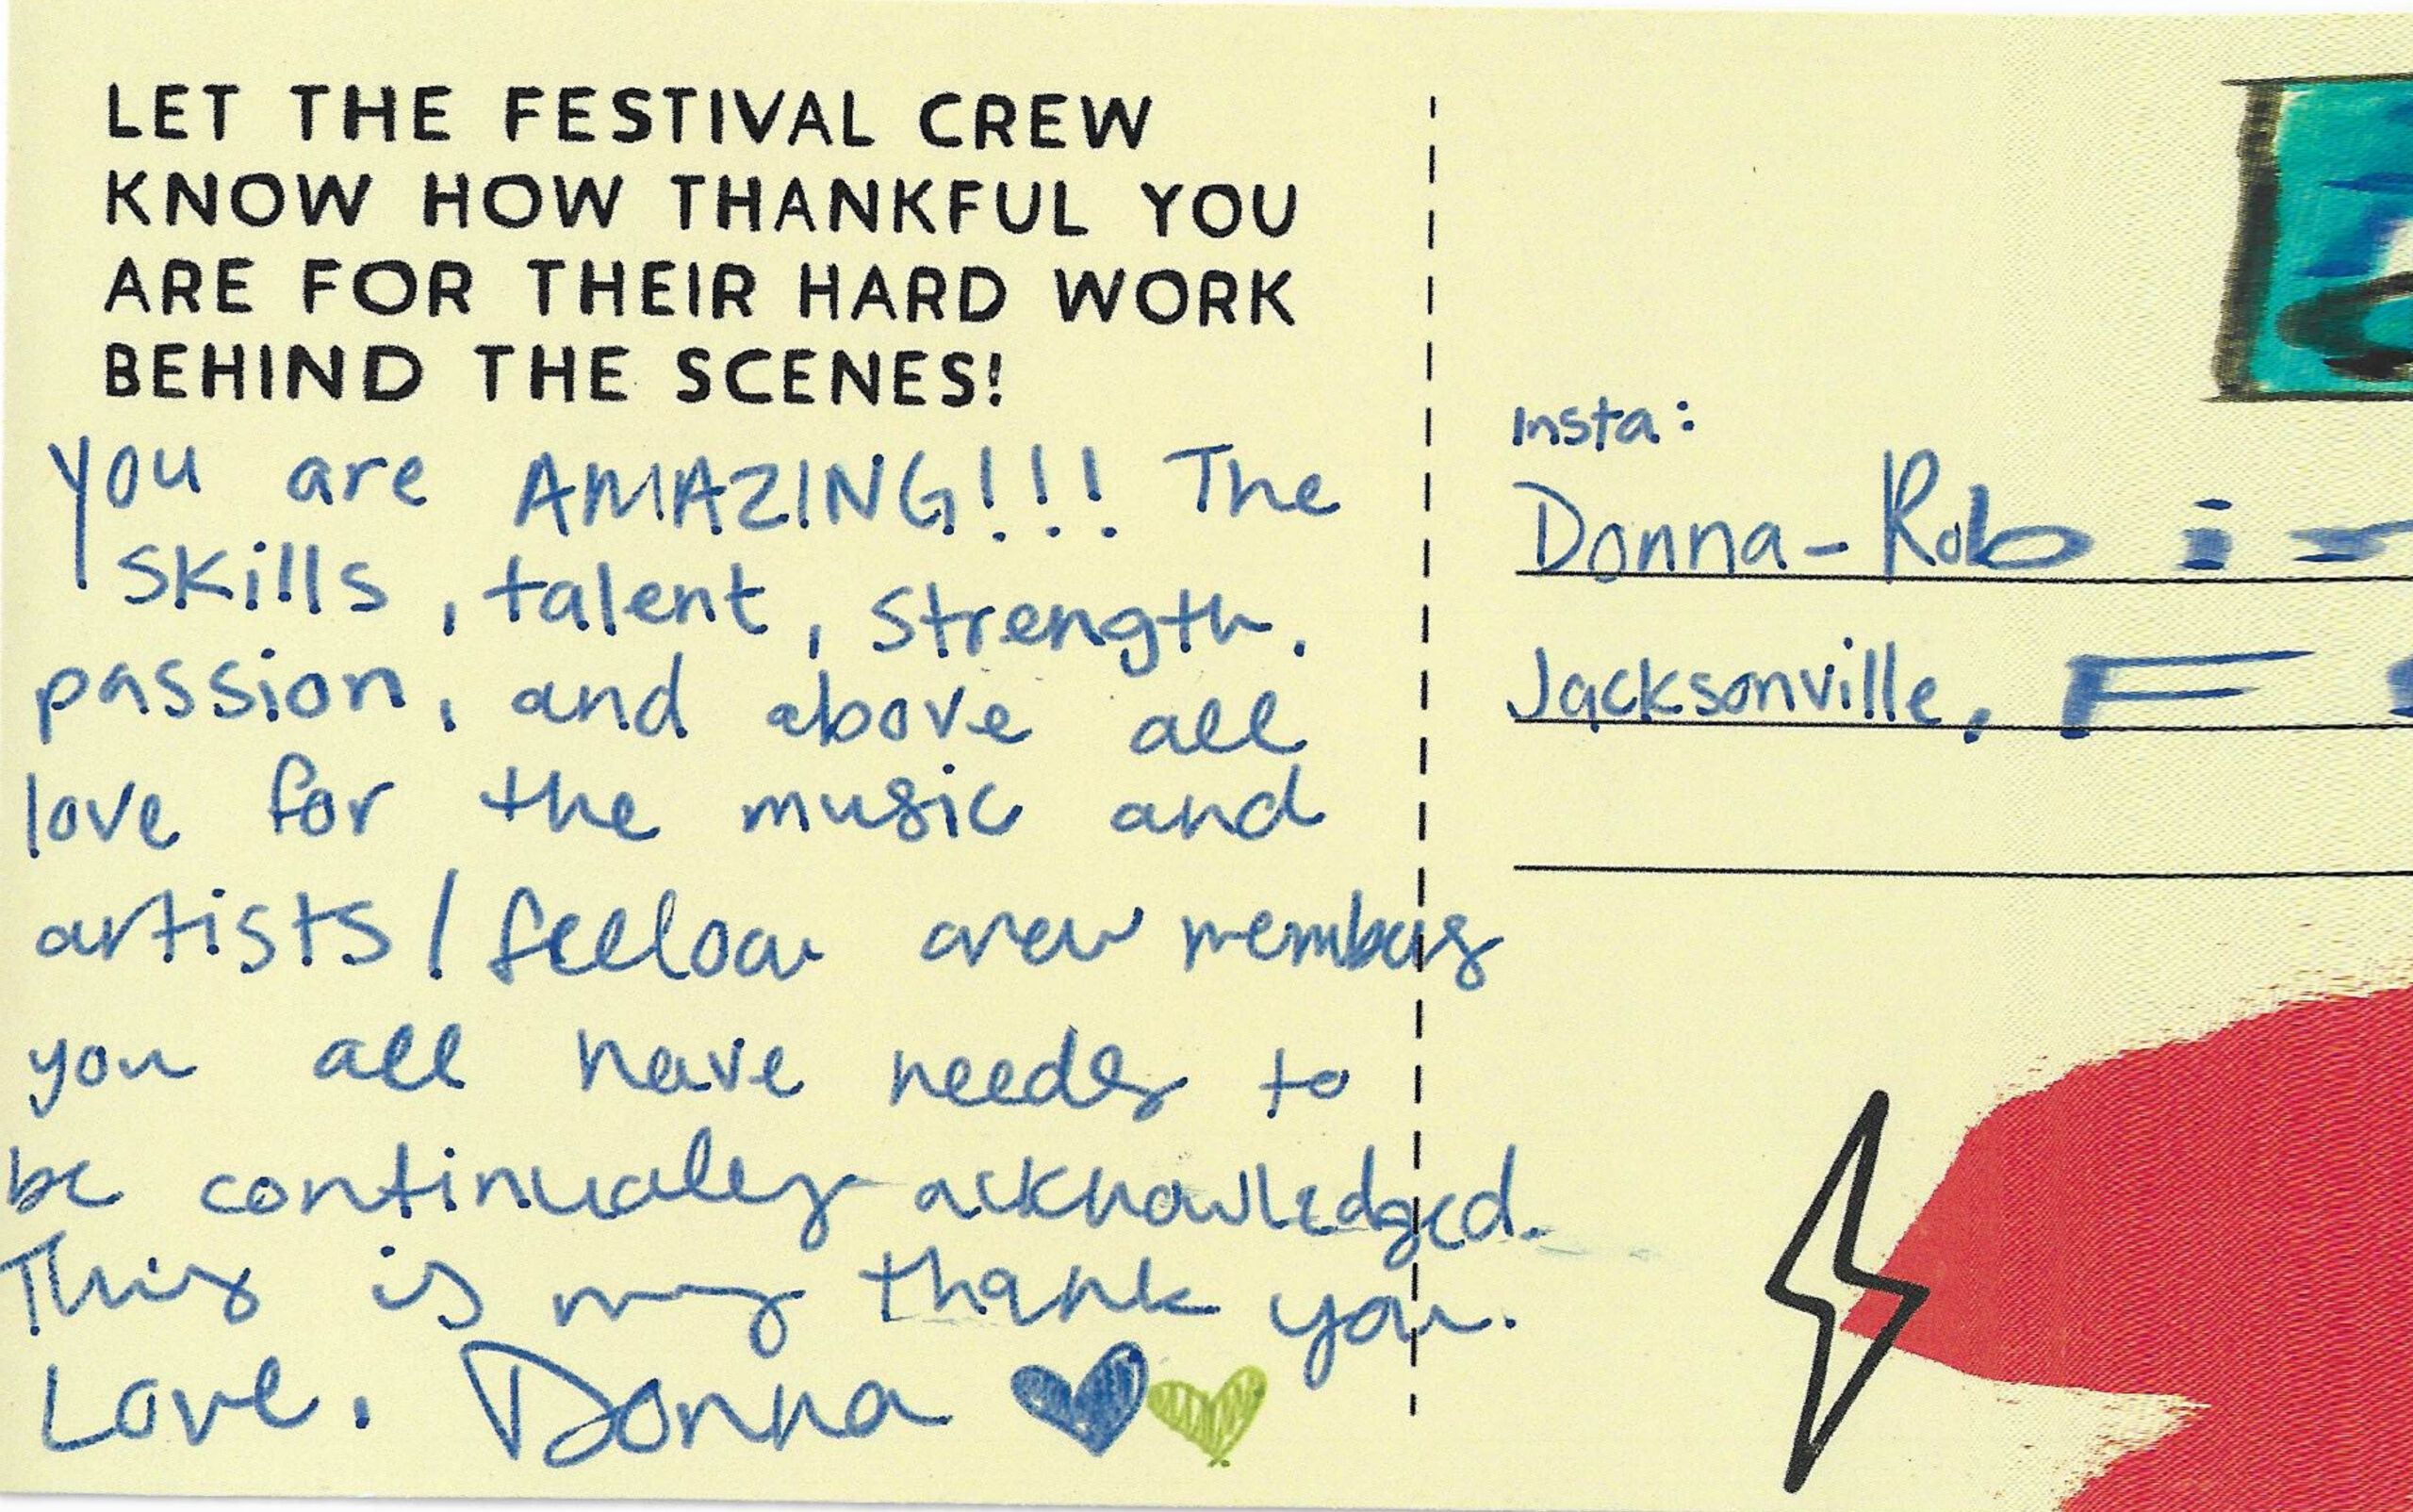 LET THE FESTIVAL CREW
KNOW HOW THANKFUL YOU
ARE FOR THEIR HARD WORK
BEHIND THE SCENES!
you are AMAZING!!! The
skills, talent, strength,
passion, and above all
love for the music and
artists / fellow crew members
you all have needs to
be continually acknowledged.
This is my thank you.
Love, Donna
Insta:
Donna-Rob
Jacksonville, F